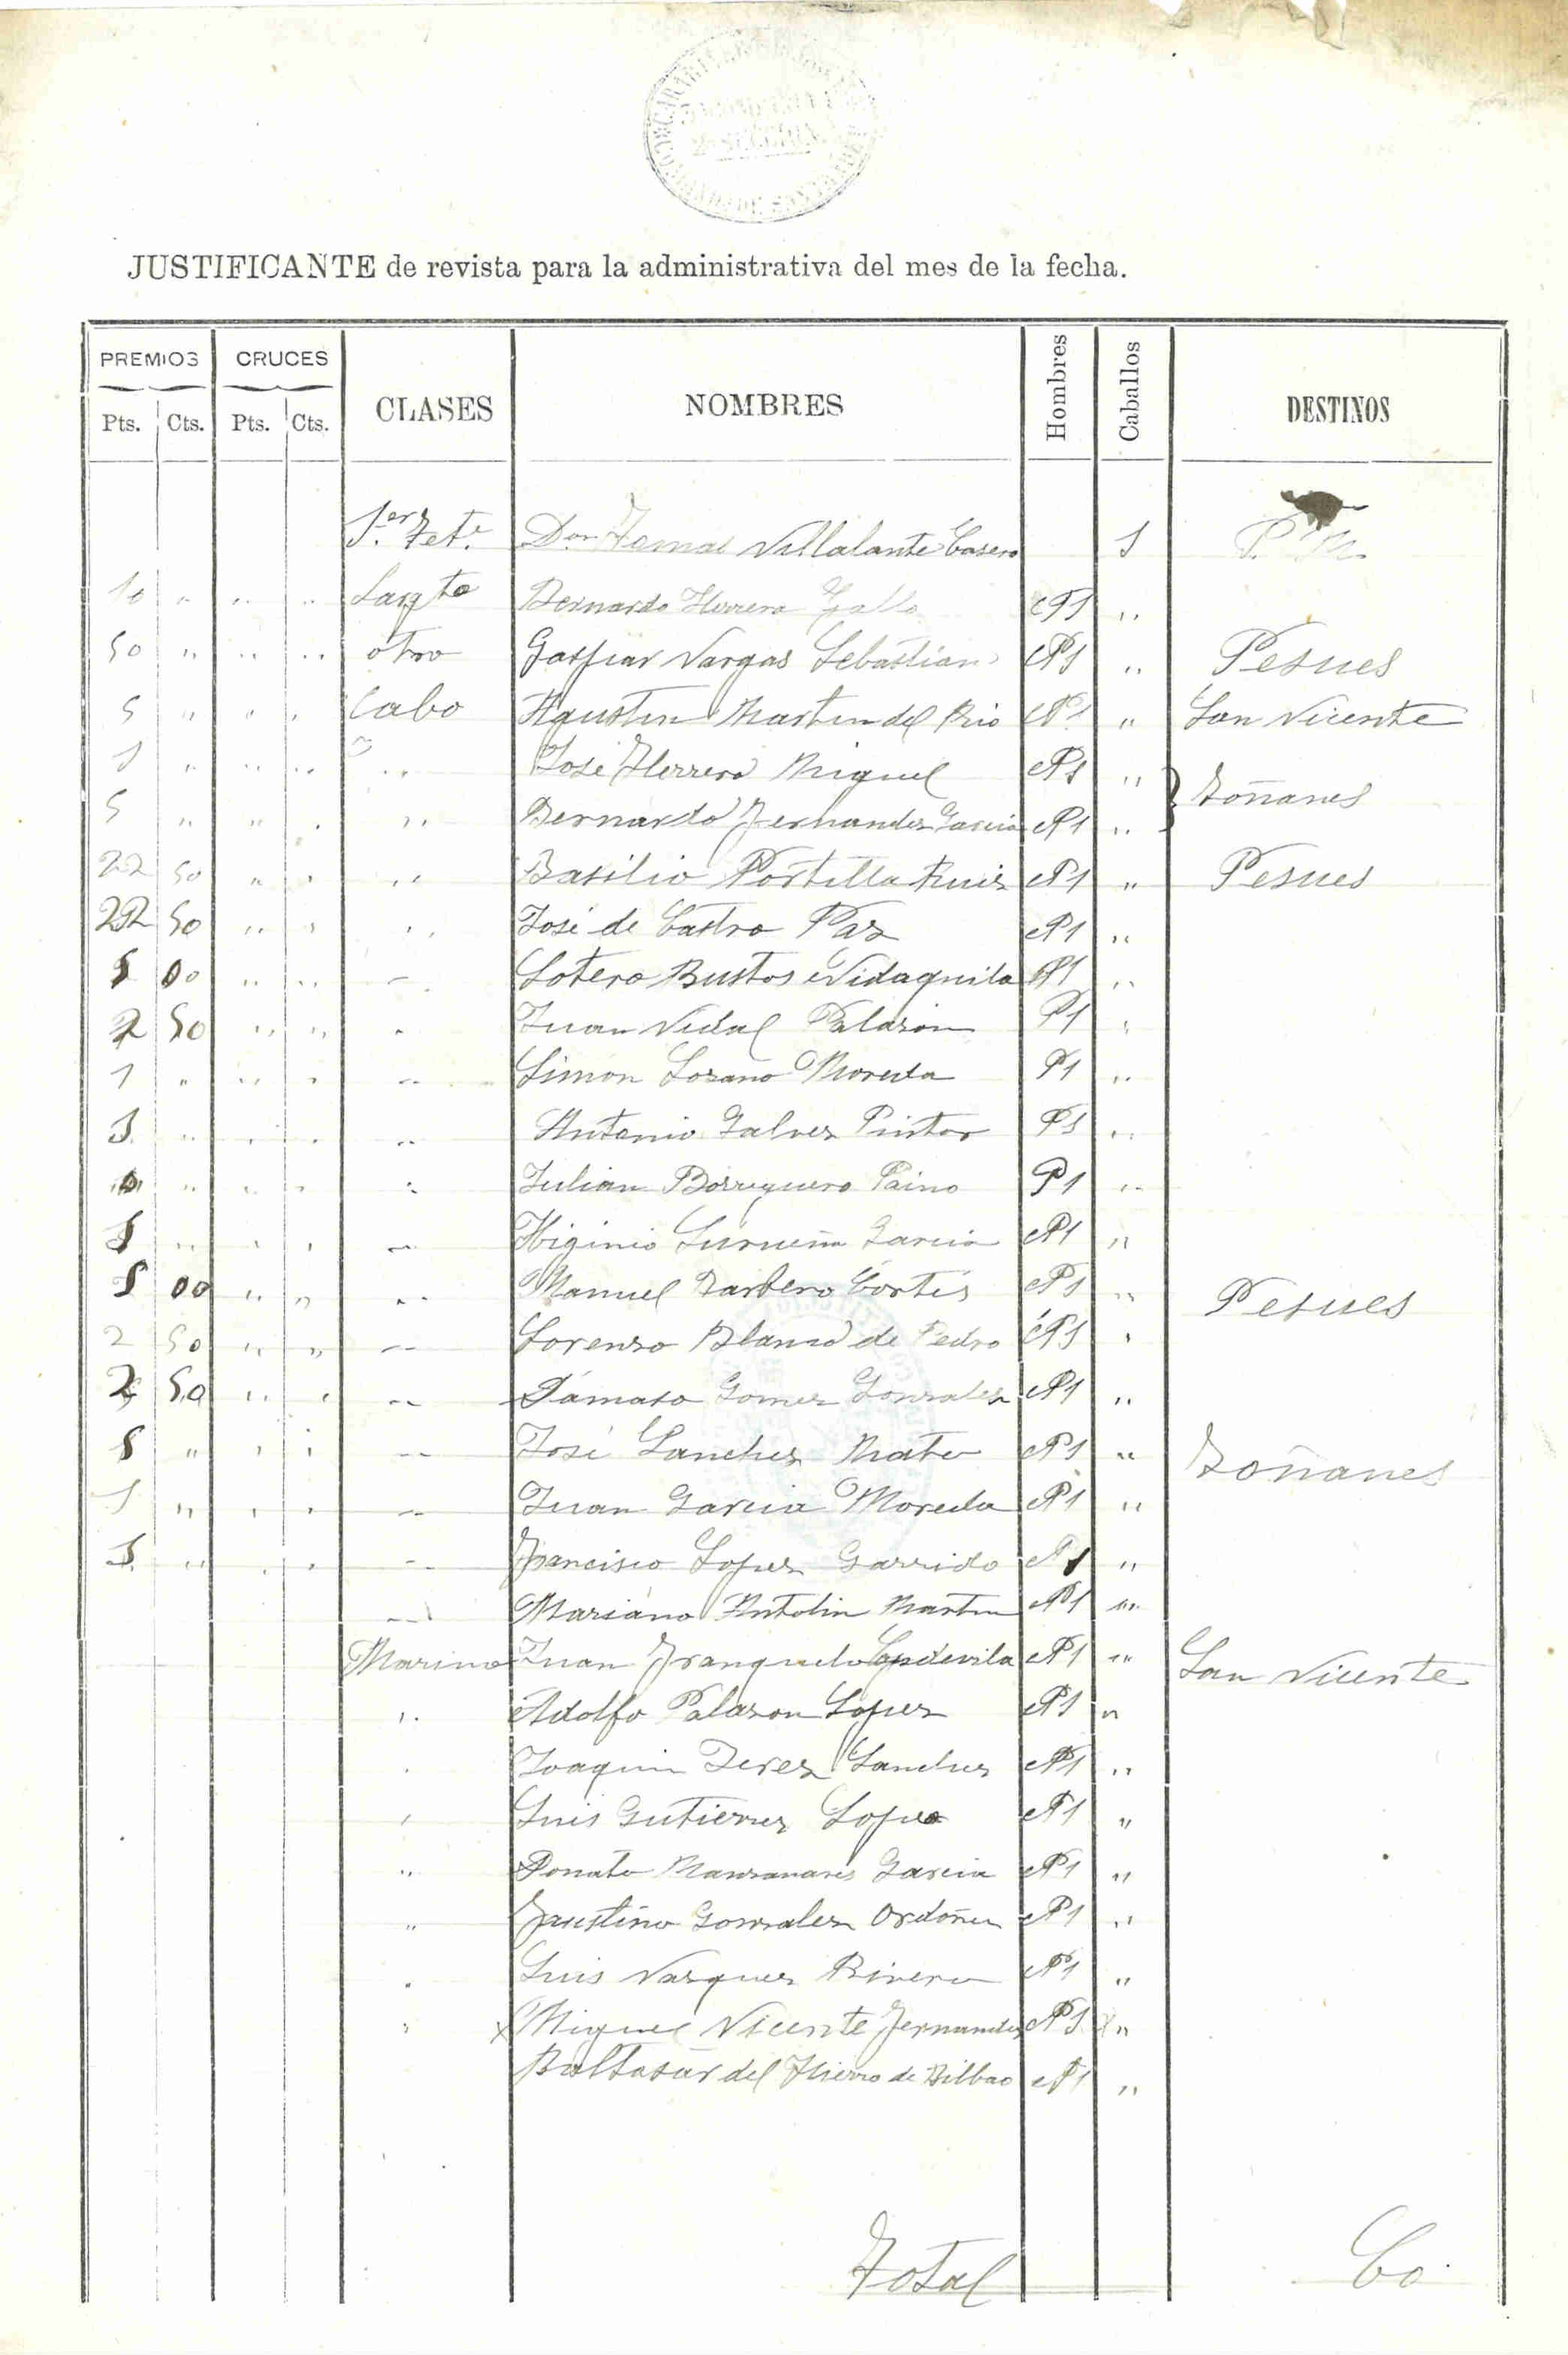 JUSTIFICANTE de revista para la administrativa del mes de la fecha.
PREMIOS CRUCES CLASES NOMBRES Hombres Caballos DESTINOS
Pts. Cts. Pts. Cts.
1.er Tete. Don Tomas Villalante Casero 1 P. M.
10 " " " Sargto Bernardo Herrera Gallo P 1 "
50 " " " otro Gaspar Vargas Sebastian P 1 " Pesues
5 " " " Cabo Agustin Martin del Rio P 1 " San Vicente
1 " " " " José Herrero Miguel P 1 "
Toñanes
5 " " " " Bernardo Fernandez Garcia P 1 "
22 50 " " " Basilio Portilla Ruiz P 1 " Pesues
22 50 " " " José de Castro Paz P 1 "
5 00 " " " Sotero Bustos Vidaquila P 1 "
2 50 " " " Juan Vidal Palazon P 1 "
1 " " " " Simon Lozano Moreda P 1 "
" " " " Antonio Galvez Pintor P 1 "
" " " " Julian Borreguero Paino P 1 "
" " " " Higinio Lurueña Garcia P 1 "
5 00 " " " Manuel Barbero Cortés P 1 " Pesues
2 50 " " " Lorenzo Blanco de Pedro P 1 "
2 50 " " " Dámaso Gomez Gonzalez P 1 "
5 " " " " José Sanchez Mateo P 1 " Toñanes
1 " " " " Juan Garcia Moreda P 1 "
" " " " Francisco Lopez Garrido P 1 "
" Mariano Antolin Martin P 1 "
Marino Juan Franquelo Capdevila P 1 " San Vicente
" Adolfo Palazon Lopez P 1 "
" Joaquin Perez Sanchez P 1 "
" Luis Gutierrez Lopez P 1 "
" Donato Manzanares Garcia P 1 "
" Faustino Gonzalez Ordoñez P 1 "
" Luis Vazquez Rivera P 1 "
" x Miguel Vicente Fernandez P 1 "
Baltasar del Hierro de Bilbao P 1 "
Total Co.